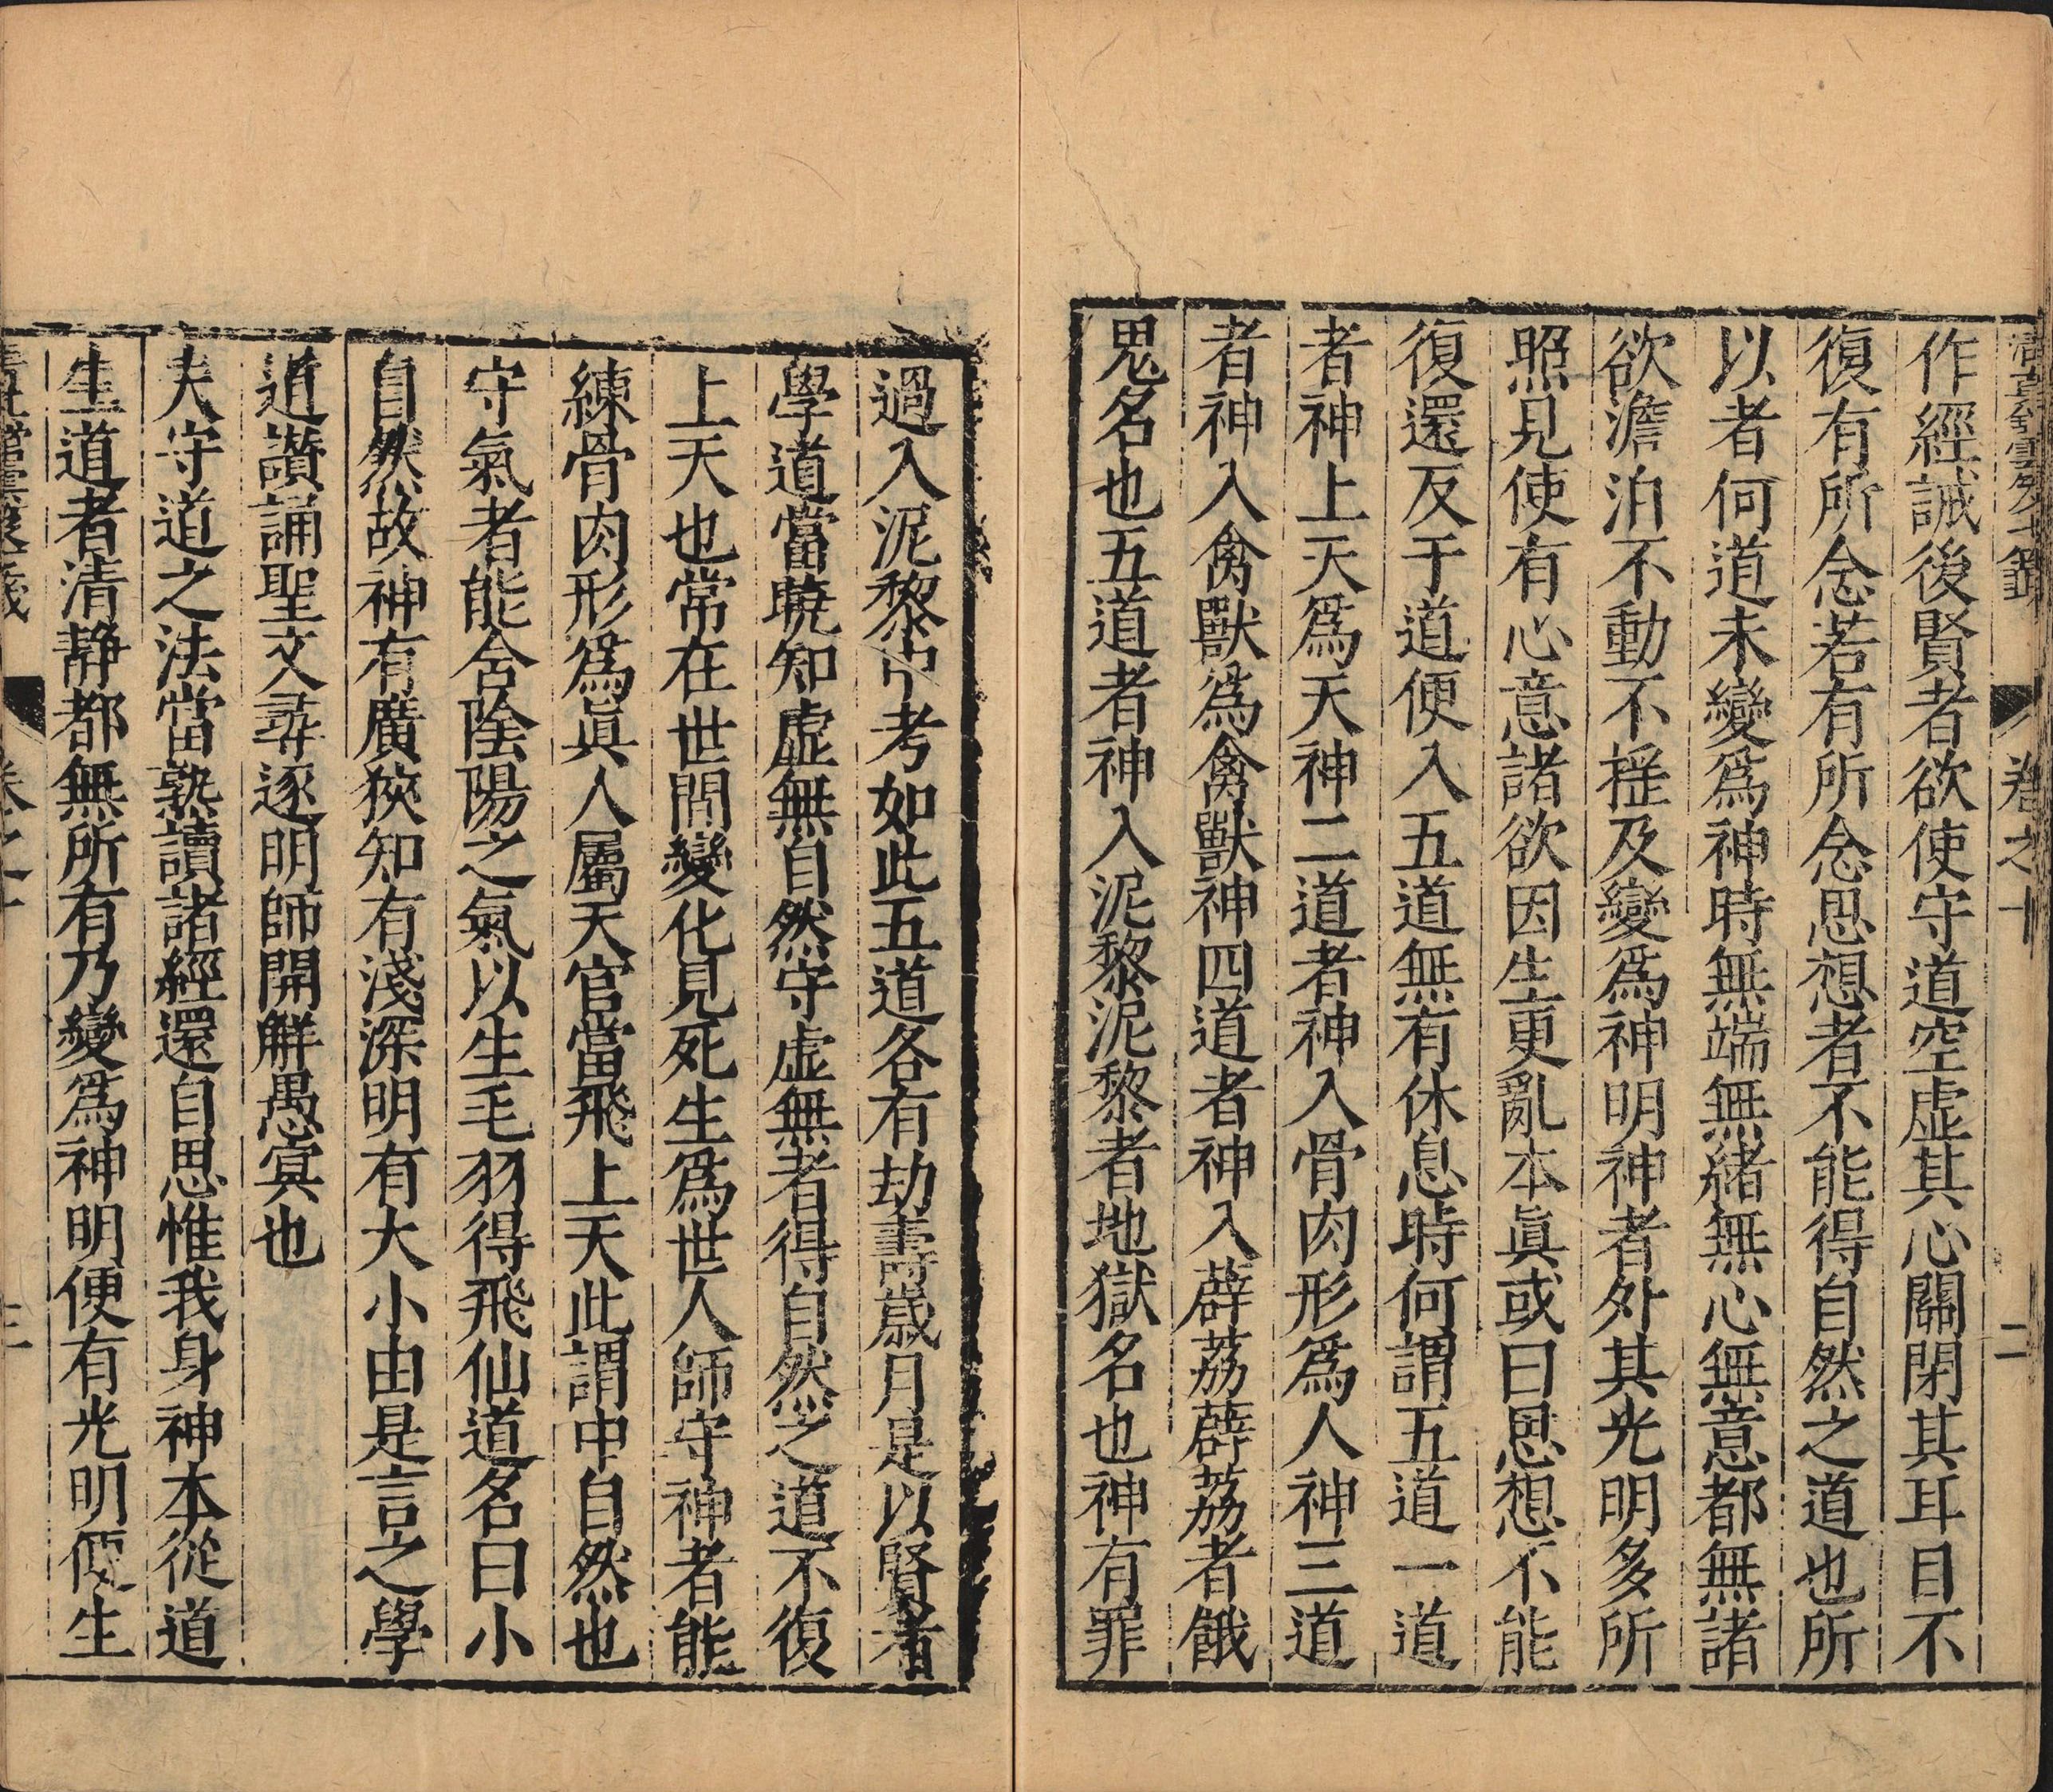 卷之十 二
作經誡後賢者欲使守道空虛其心關閉其耳目不
復有所念若有所念思想者不能得自然之道也所
以者何道未變爲神時無端無緒無心無意都無諸
欲澹泊不動不搖及變爲神明神者外其光明多所
照見使有心意諸欲因生更亂本眞或曰思想不能
復還反于道便入五道無有休息時何謂五道一道
者神上天爲天神二道者神入骨肉形爲人神三道
者神入禽獸爲禽獸神四道者神入薜荔薜荔者餓
鬼名也五道者神入泥黎泥黎者地獄名也神有罪
過入泥黎中考如此五道各有劫壽歲月是以賢者
學道當曉知虛無自然守虛無者得自然之道不復
上天也常在世間變化見死生爲世人師守神者能
練骨肉形爲眞人屬天官當飛上天此謂中自然也
守氣者能含陰陽之氣以生毛羽得飛仙道名曰小
自然故神有廣狹知有淺深明有大小由是言之學
道讚誦聖文尋逐明師開解愚冥也
夫守道之法當熟讀諸經還自思惟我身神本從道
生道者清靜都無所有乃變爲神明便有光明便生